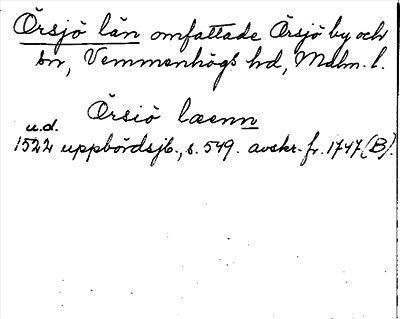 Örsjö län omfattade Örsjö by och
sn, Vemmenhögs hd, Malm. l.
Örsiö laenn
u.d.
1522 uppbördsjb., s. 549. avskr. fr. 1747 (B).